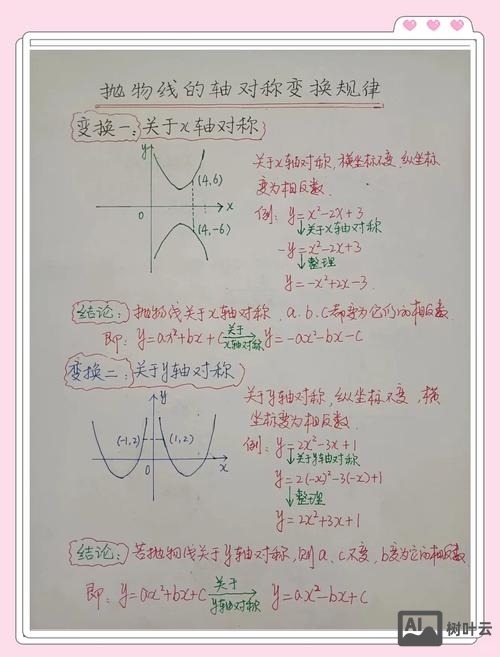 抛物线的轴对称变换规律
变换一：关于x轴对称
y
(4,6)
0
x
(4,-6)
关于x轴对称，横坐标不变，纵坐标
变为相反数.
例： y=x²-2x+3
↓关于x轴对称
-y=x²-2x+3
↓整理
y=-x²+2x-3.
结论：抛物线关于x轴对称，a.b.c都变为它们的相反数.
即：y=ax²+bx+c 关于x轴对称→ y=-ax²-bx-c
变换二：关于y轴对称
y
(-1,2)
(1,2)
0
x
关于y轴对称，纵坐标不变，横
坐标变为相反数.
例： y=2x²-3x+1
↓关于y轴对称
y=2(-x)²-3(-x)+1
↓整理
y=2x²+3x+1
结论：若抛物线关于y轴对称，则a、c不变，b变为它的相反数.
即：y=ax²+bx+c 关于y轴对称→ y=ax²-bx+c
AI 树叶云